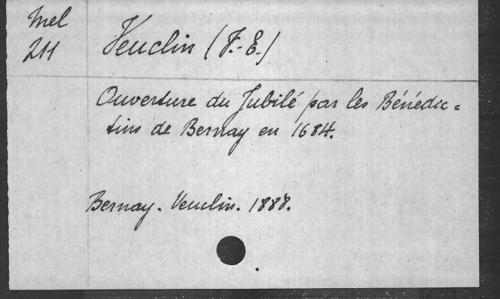 Mel
211
Veuclin (F.-E.)
Ouverture du Jubilé par les Bénédic=
tins de Bernay en 1684.
Bernay. Veuclin. 1888.